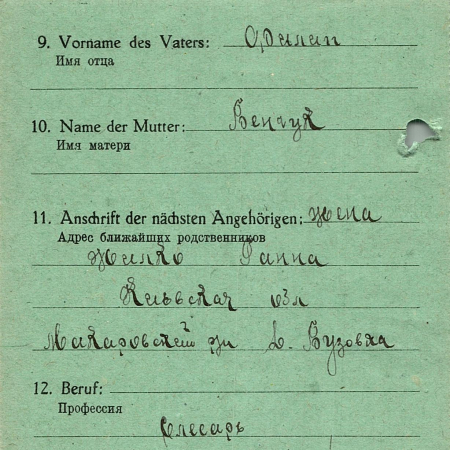 9. Vorname des Vaters: Филип
Имя отца
10. Name der Mutter: Венчук
Имя матери
11. Anschrift der nächsten Angehörigen: жена
Адрес ближайших родственников
Жилко Ганна
Киевская обл
Макаровского рн д. Вузовка
12. Beruf:
Профессия
Слесарь